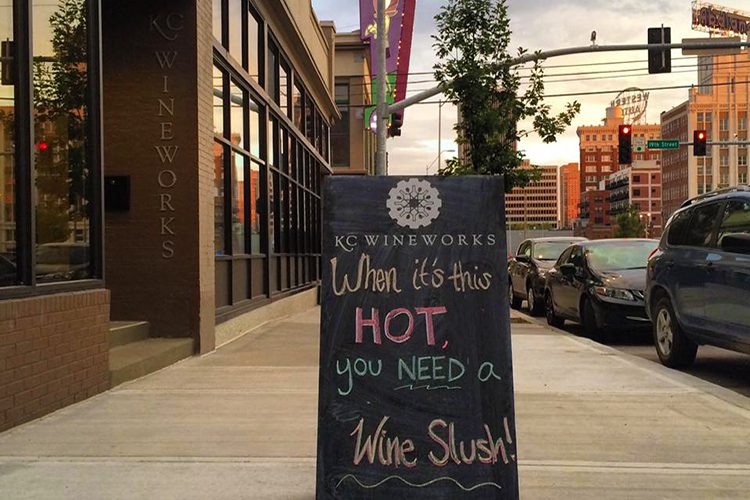 KC WINEWORKS
KC WINEWORKS
When it's this
HOT,
you NEED a
Wine Slush!
19th Street
WESTERN
AUTO